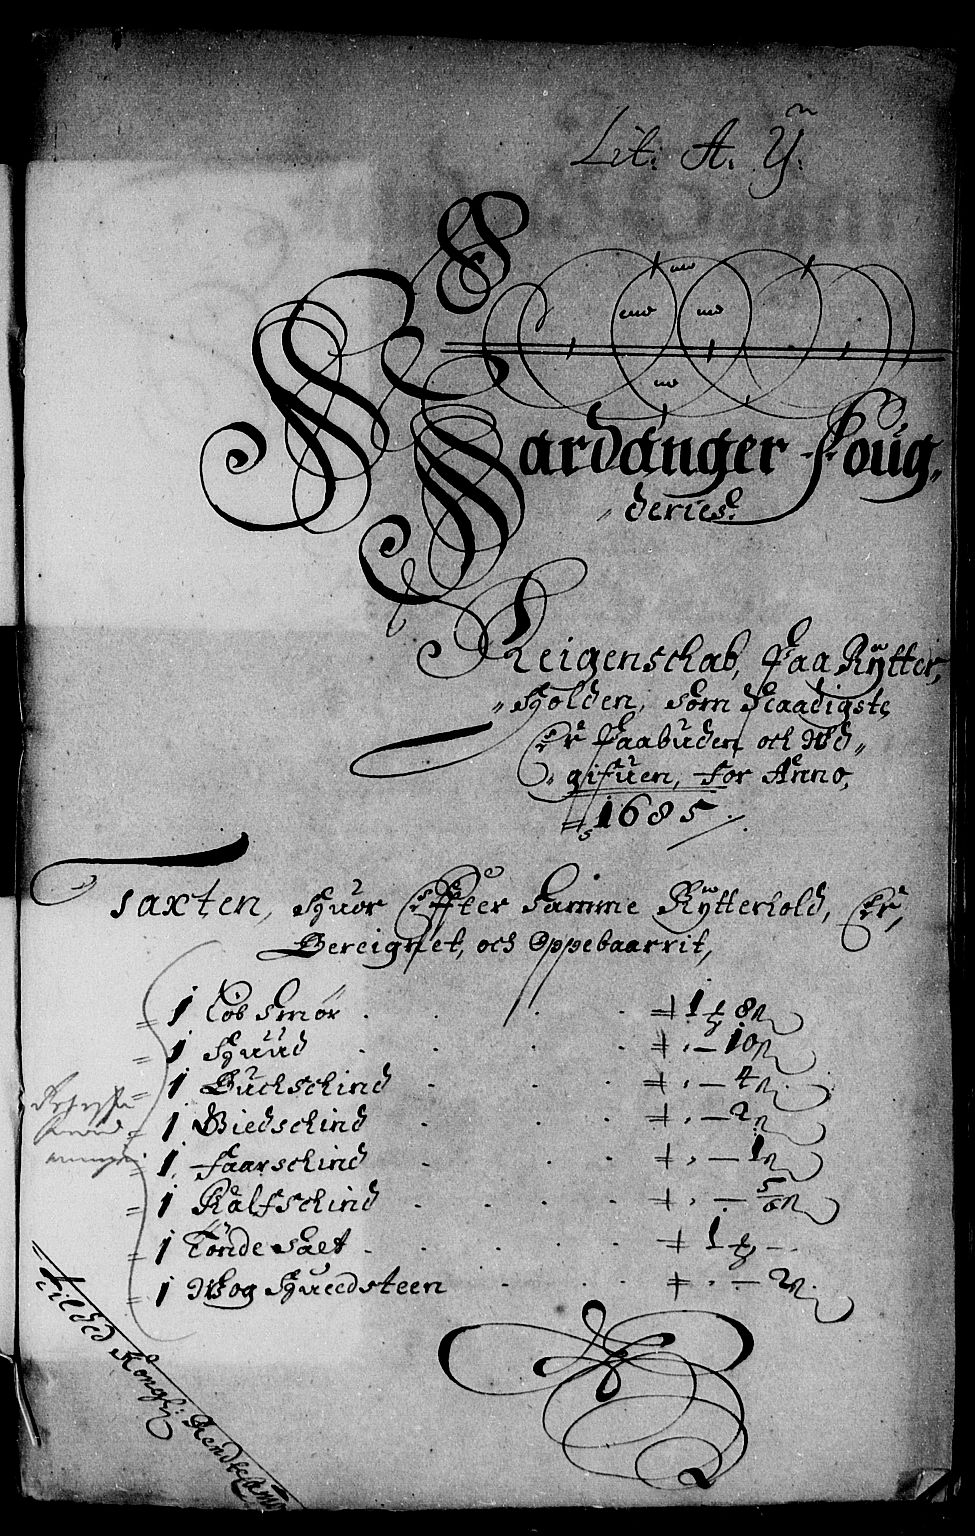 Lit: A. ÿ.
Hardanger Foüg„
„deries.
Reigenschab, Paa Rÿtter„
„Holden, som Naadigste
Er Paabuden och Wd„
„gifüen, for Anno,
1685
Taxten, Huor Effter Samme Rÿtterhold, Er,
Bereignet, och Oppebaarrit,
1 Løb Smør . . . 1 - 8
1 Huud . . . . - 10
1 Buchschind . . . - 4
1 Giedschind . . . - 2
1 Faarschind . . . - 1
1 Kalfschind . . . - 5/6
1 Tønde Salt . . . 1 -
1 Wog Hueedsteen . . . - 2
Til ded Kongl: Rendte Camer